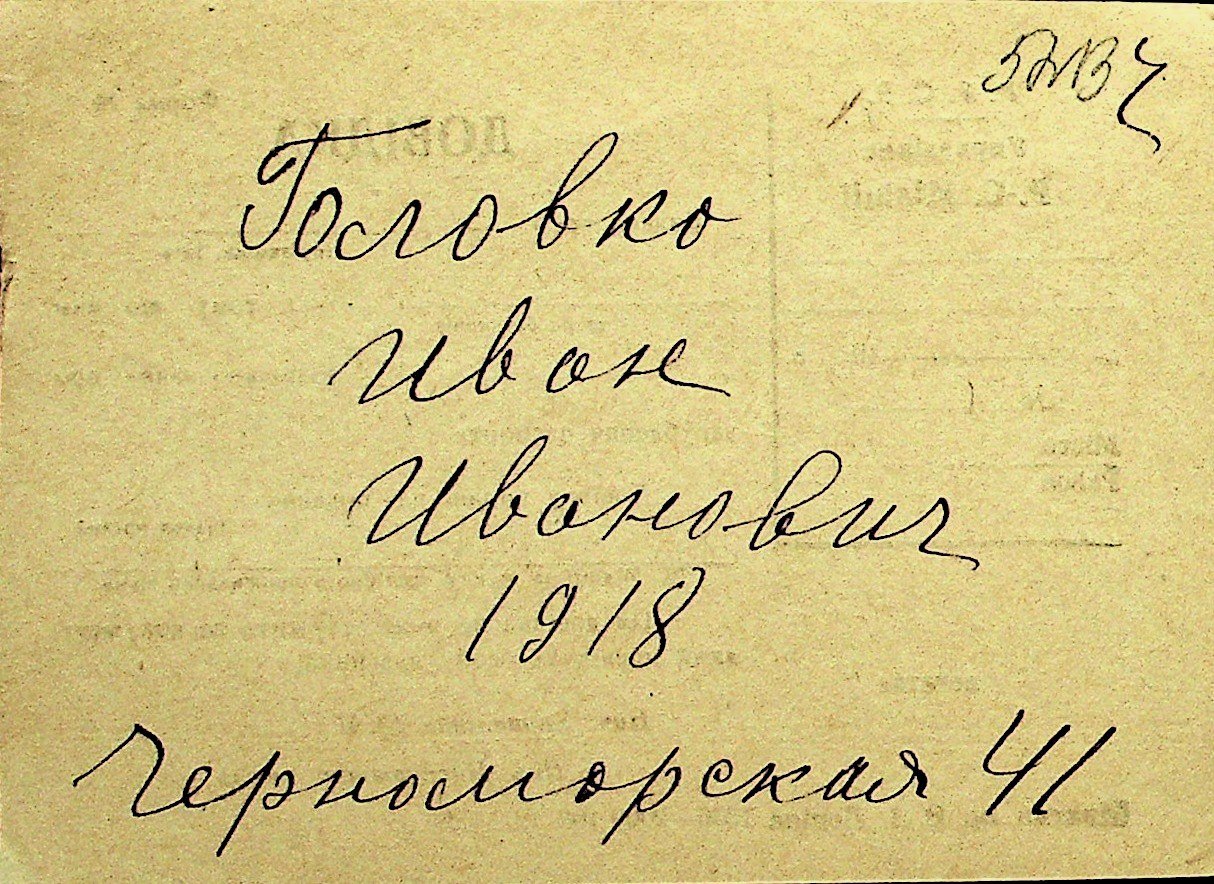 Головко
Иван
Иванович
1918
Черноморская 41